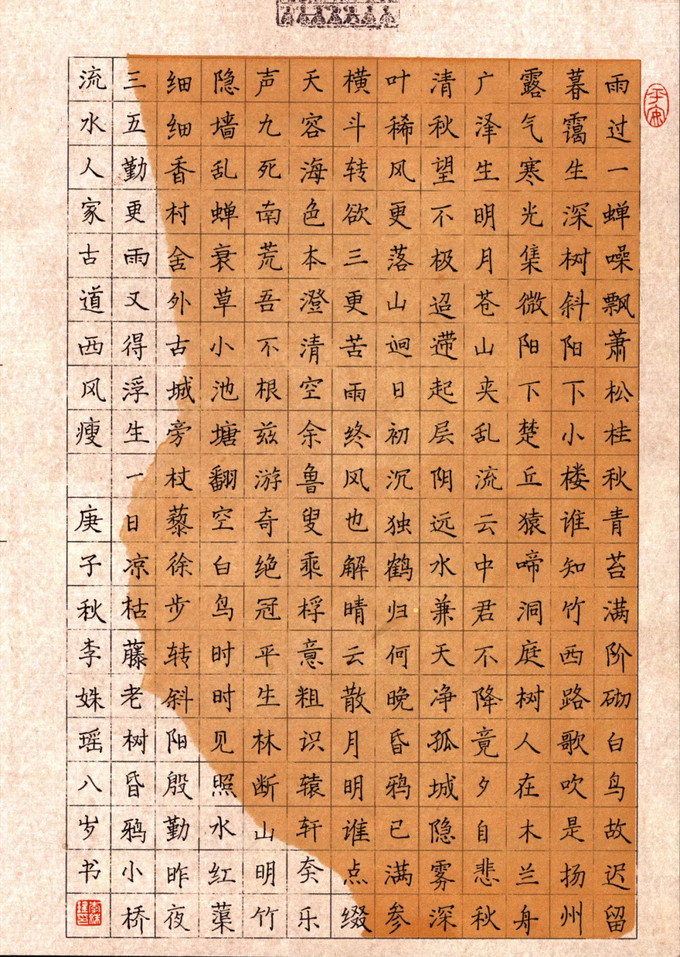 雨过一蝉噪飘萧松桂秋青苔满阶砌白鸟故迟留
暮霭生深树斜阳下小楼谁知竹西路歌吹是扬州
露气寒光集微阳下楚丘猿啼洞庭树人在木兰舟
广泽生明月苍山夹乱流云中君不降竟夕自悲秋
清秋望不极迢遰起层阴远水兼天净孤城隐雾深
叶稀风更落山迥日初沉独鹤归何晚昏鸦已满参
横斗转欲三更苦雨终风也解晴云散月明谁点缀
天容海色本澄清空余鲁叟乘桴意粗识辕轩奏乐
声九死南荒吾不根兹游奇绝冠平生林断山明竹
隐墙乱蝉衰草小池塘翻空白鸟时时见照水红蕖
细细香村舍外古城旁杖藜徐步转斜阳殷勤昨夜
三五勤更雨又得浮生一日凉枯藤老树昏鸦小桥
流水人家古道西风瘦 庚子秋李姝瑶八岁书
平安